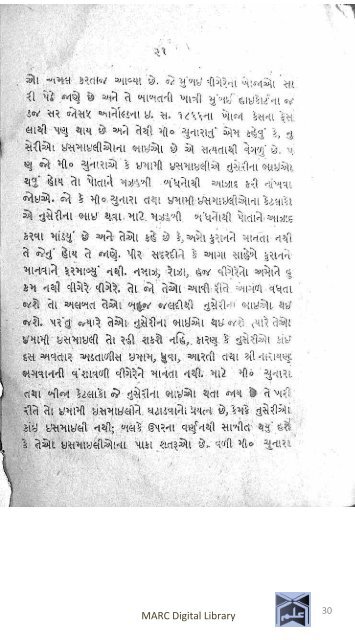 ૨૧
એા અમલ કરતાજ આવ્યા છે. જે મુંબઇ વીગેરેના ખોજાએા સા
રી પેઠે જાણે છે અને તે બાબતની ખાત્રી મુંબઇ હાઇકોર્ટના જ
ડજ સર જોસફ આર્નોલ્ડના ઇ. સ. ૧૮૬૬ના ખોજા કેસના ફેસ
લાથી પણ થાય છે અને તેથી મી૦ ચુનારાનું એમ કહેવું કે, નુ
સેરીએા ઇસમાઇલીએાના ભાઇએા છે એ સત્યતાથી વેગળું છે. પ
ણ જો મી૦ ચુનારાએ કે ઇમામી ઇસમાઇલીએ નુસેરીના ભાઇએા
થવું હોય તો પોતાને મઝહબી બંધનોથી આઝાદ કરી નાંખવા
જોઇએ. જો કે મી૦ ચુનારા તથા ઇમામી ઇસમાઇલીએાના કેટલાકો
એ નુસેરીના ભાઇ થવા માટે મઝહબી બંધનોથી પોતાને આઝાદ
કરવા માંડયું છે અને તેએા કહે છે કે, અમો કુરાનને માનતા નથી
તે જેનું હોય તે જાણે. પીર સદરદીને કે આગા સાહેબે કુરાનને
માનવાને ફરમાવ્યું નથી. નમાઝ, રોઝા, હજ વીગેરેનો અમોને હુ
કમ નથી વીગેરે વીગેરે. તો જો તેએા આવી રીતે આગળ વધતા
જશે તો અલબત તેએા બહુજ જલદીથી નુસેરીના ભાઇએા થઇ
જશે. પરંતુ જ્યારે તેએા નુસેરીના ભાઇએા થઇ જશે ત્યારે તેએા
ઇમામી ઇસમાઇલી તો રહી શકશે નહિ, કારણ કે નુસેરીએા કાંઇ
દસ અવતાર અડતાળીસ ઇમામ, ધુવા, આરતી તથા શ્રી નારાયણ
ભગવાનની વંશાવળી વીગેરેને માનતા નથી. માટે મી૦ ચુનારા
તથા બીજા કેટલાકો જે નુસેરીના ભાઇએા થતા જાય છે તે ખરી
રીતે તો ઇમામી ઇસમાઇલીને ઘટાડવાનો પ્રયત્ન છે, કેમકે નુસેરીએા
કાંઇ ઇસમાઇલી નથી; બલકે ઉપરના વર્ણનથી સાબીત થયું હશે
કે તેએા ઇસમાઇલીએાના પાકા શતરૂએા છે. વળી મી૦ ચુનારા
MARC Digital Library
علم
30